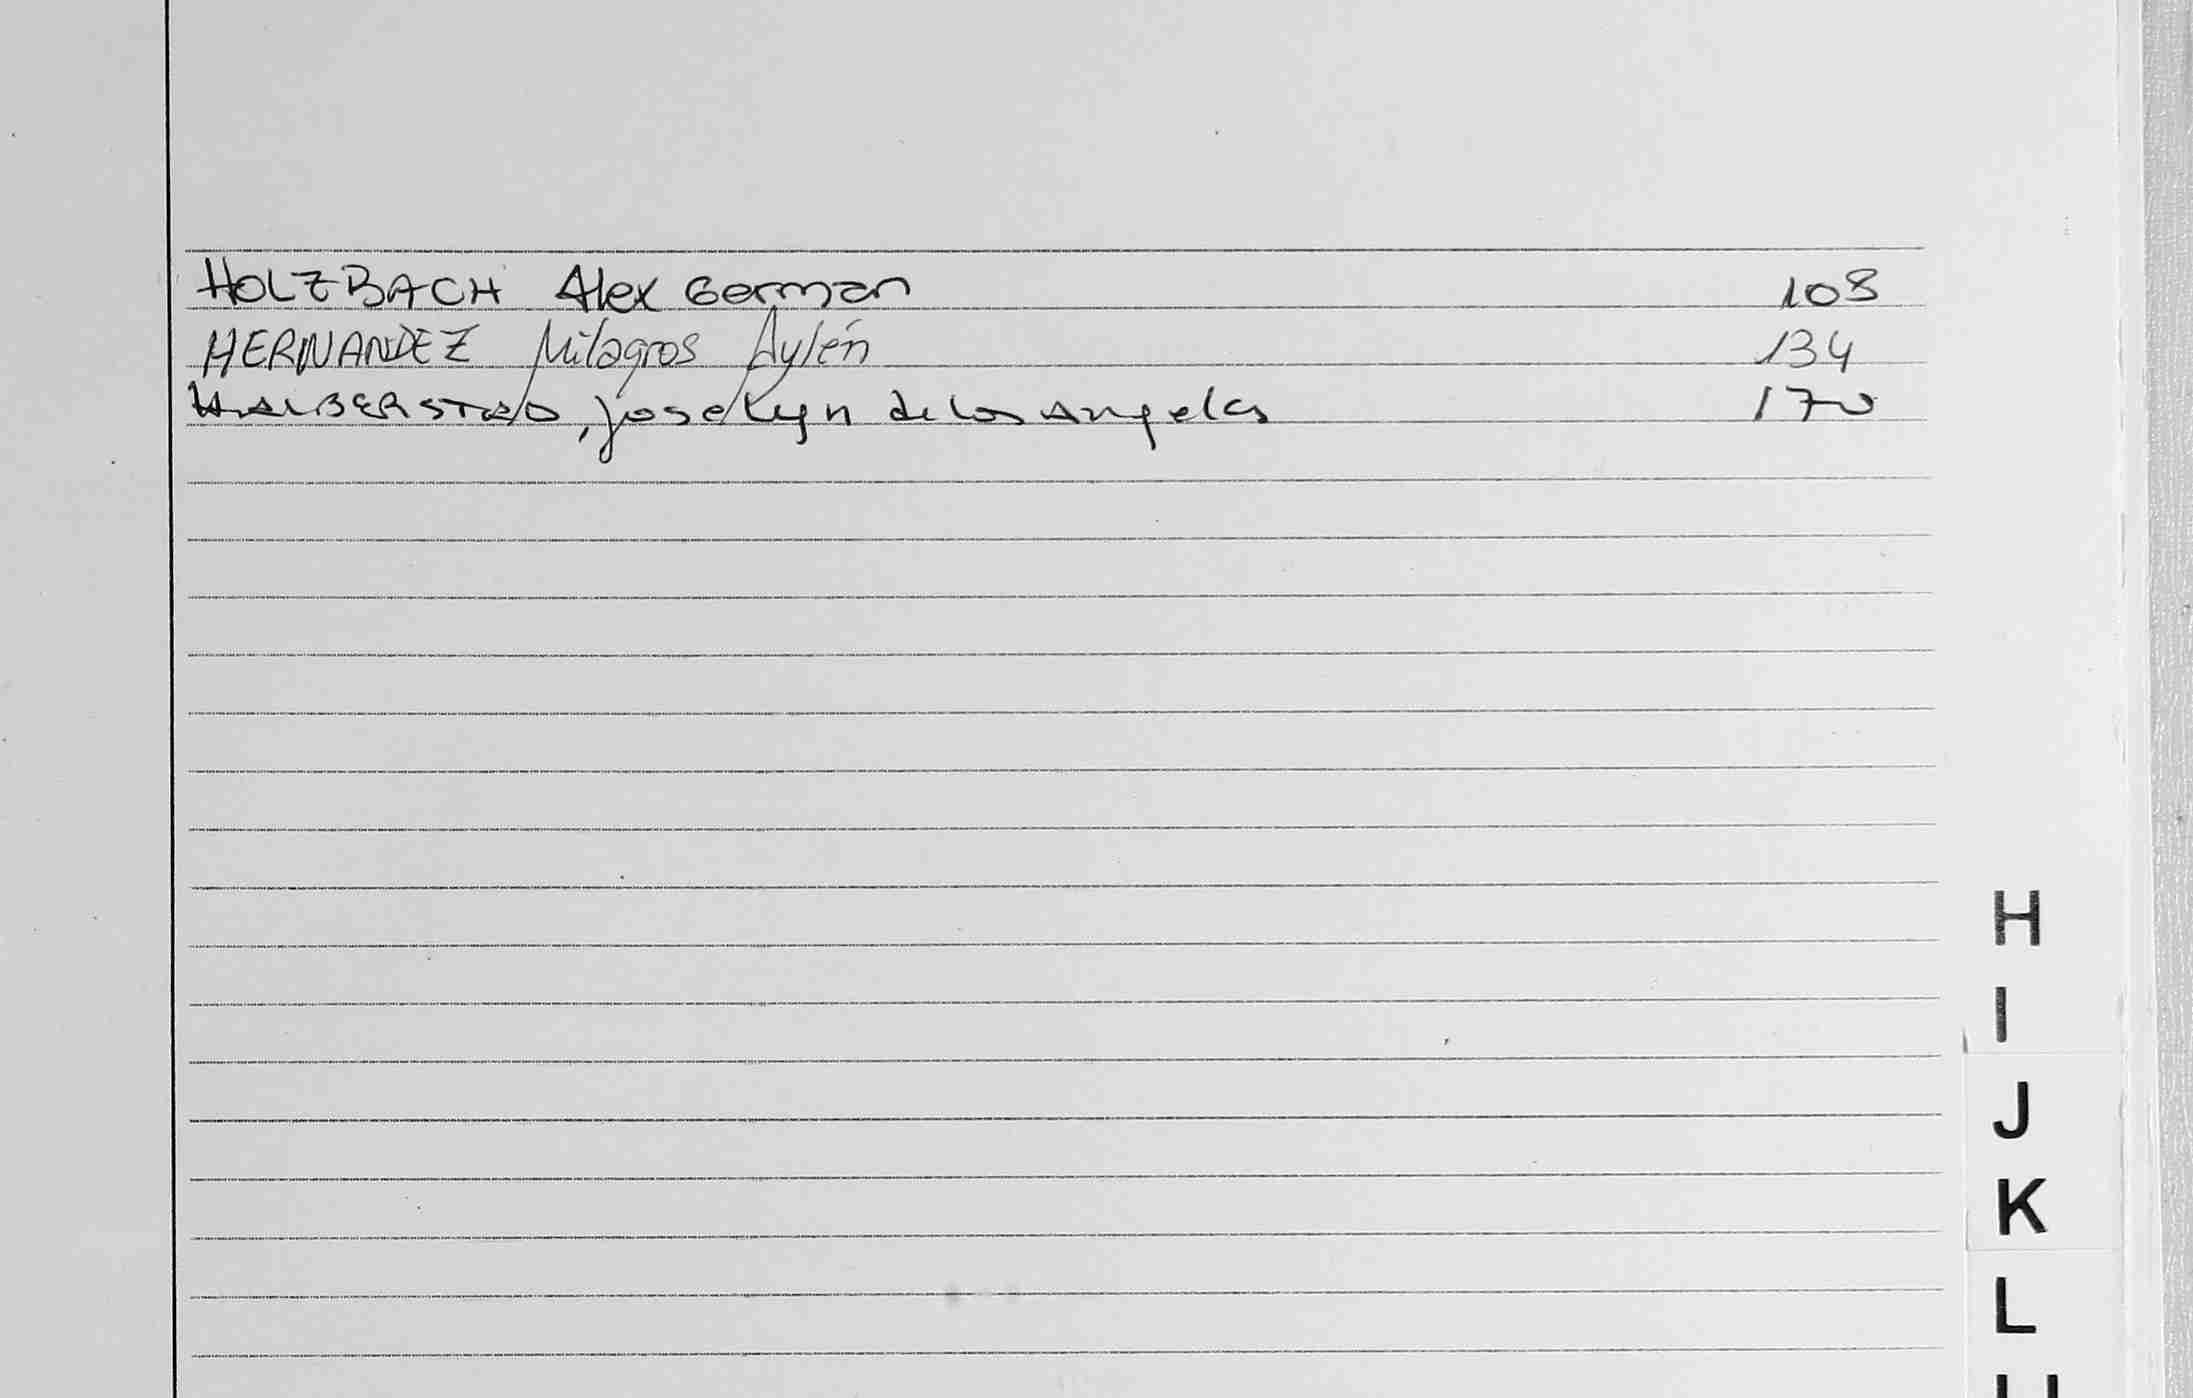 HOLZBACH Alex German 108
HERNANDEZ Milagros Aylén 134
HALBERSTAD, Joselyn de los Angeles 170
H
I
J
K
L